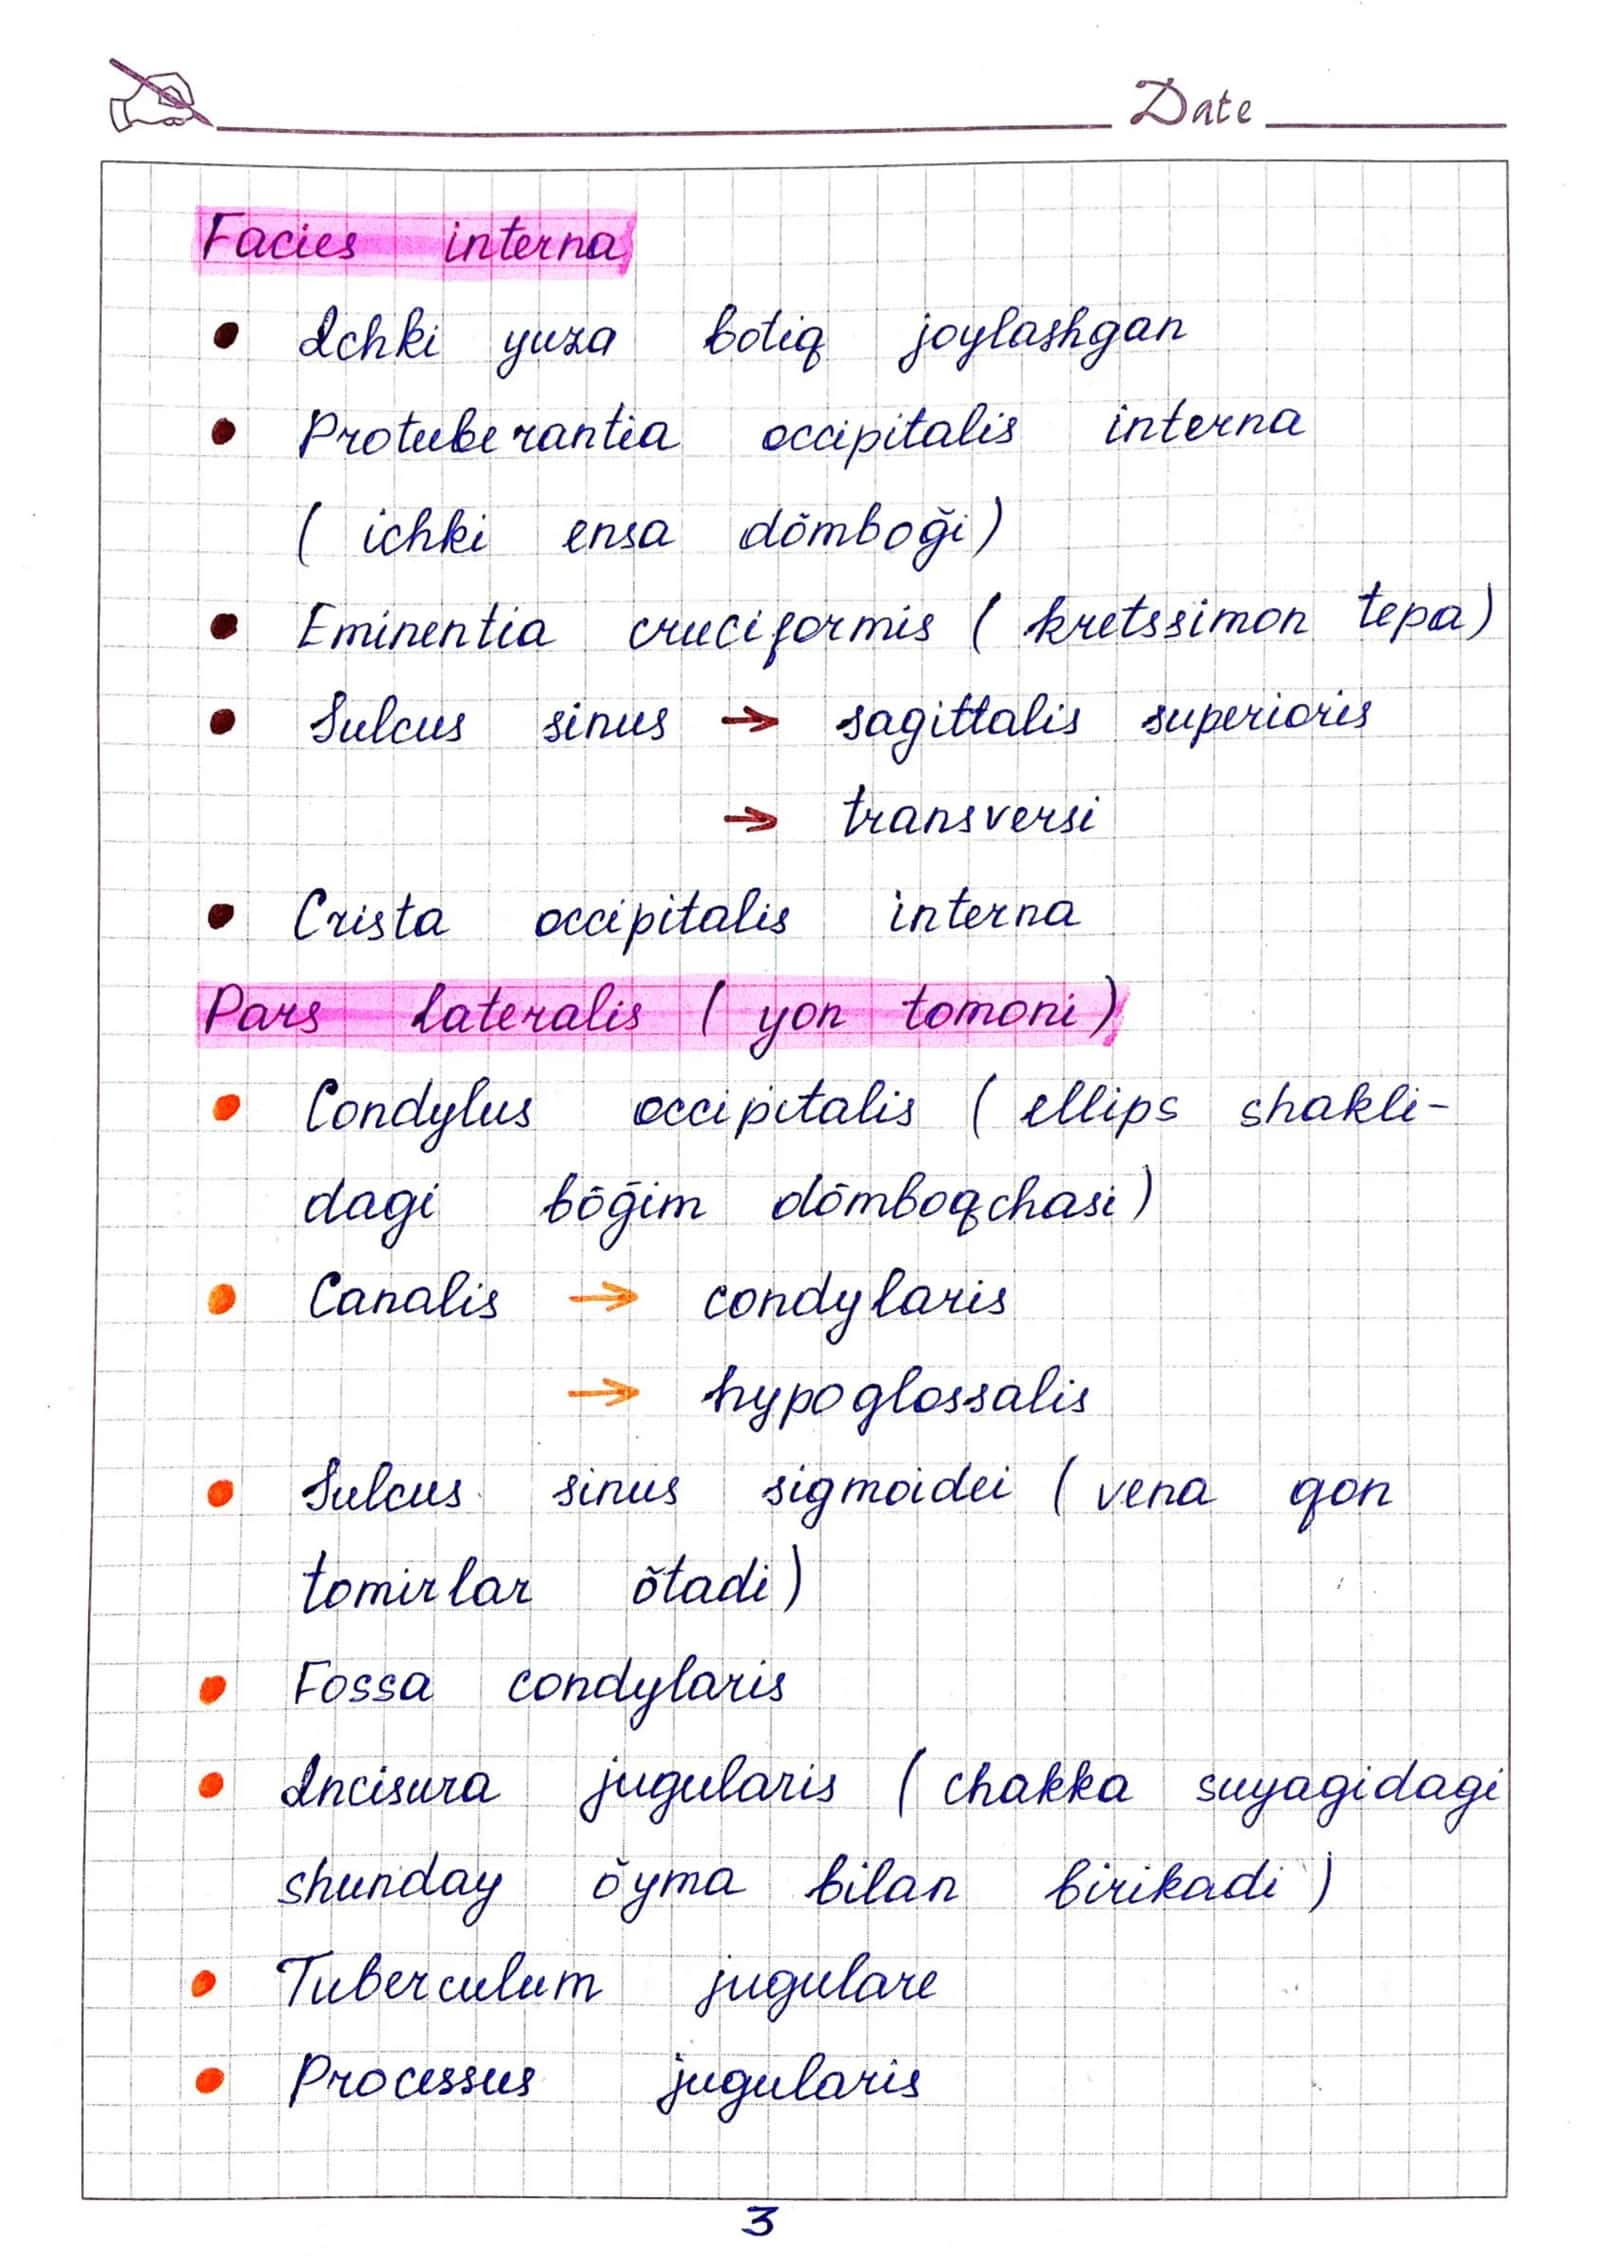 Date
Facies interna
• Ichki yuza botiq joylashgan
• Protuberantia occipitalis interna
( ichki ensa dõmboği)
• Eminentia cruciformis ( kretssimon tepa)
• Sulcus sinus → sagittalis superioris
→ transversi
• Crista occipitalis interna
Pars lateralis ( yon tomoni)
• Condylus occipitalis ( ellips shakli-
dagi bõğim dõmboqchasi)
• Canalis → condylaris
→ hypoglossalis
• Sulcus sinus sigmoidei ( vena qon
tomirlar õtadi)
• Fossa condylaris
• Incisura jugularis ( chakka suyagidagi
shunday õyma bilan birikadi )
• Tuberculum jugulare
• Processus jugularis
3